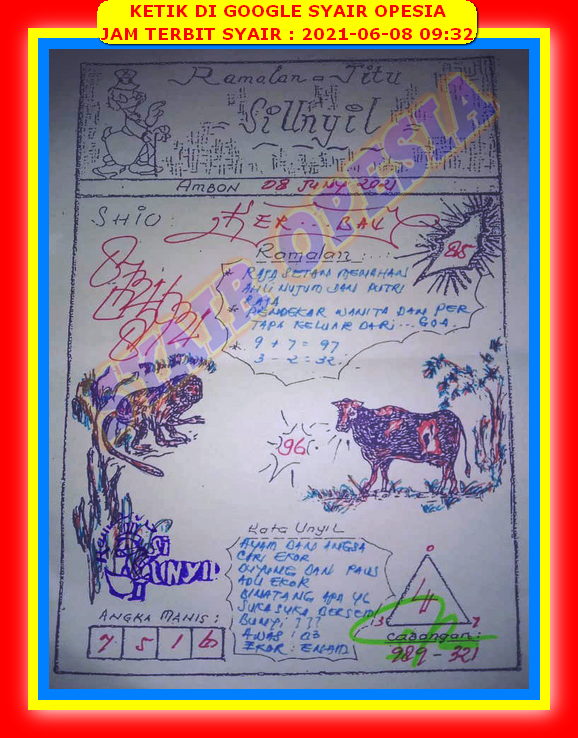 KETIK DI GOOGLE SYAIR OPESIA
JAM TERBIT SYAIR : 2021-06-08 09:32
Ramalan - Jitu
Si Unyil
AMBON 08 JUNY 2021
SYAIR OPESIA
SHIO :
KER... BAU
85
Ramalan :
* RAJA SETAN MENAHAN
AHLI NUJUM DAN PUTRI
RAJA
* PENDEKAR WANITA DAN PER
TAPA KELUAR DARI... GOA.
* 9 + 7 = 97
3 - 2 = 32
96
Kata Unyil
AYAM DAN ANGSA
CARI EKOR
DUYUNG DAN PAUS
ADU EKOR
BINATANG APA YG
SUKA SUKA BERSEM
BUNYI ???
AWAS : 03
EKOR : ENAM
Si
UNYIL
ANGKA MANIS :
7 5 1 6
0
4
3 7
Cadangan :
989 - 321